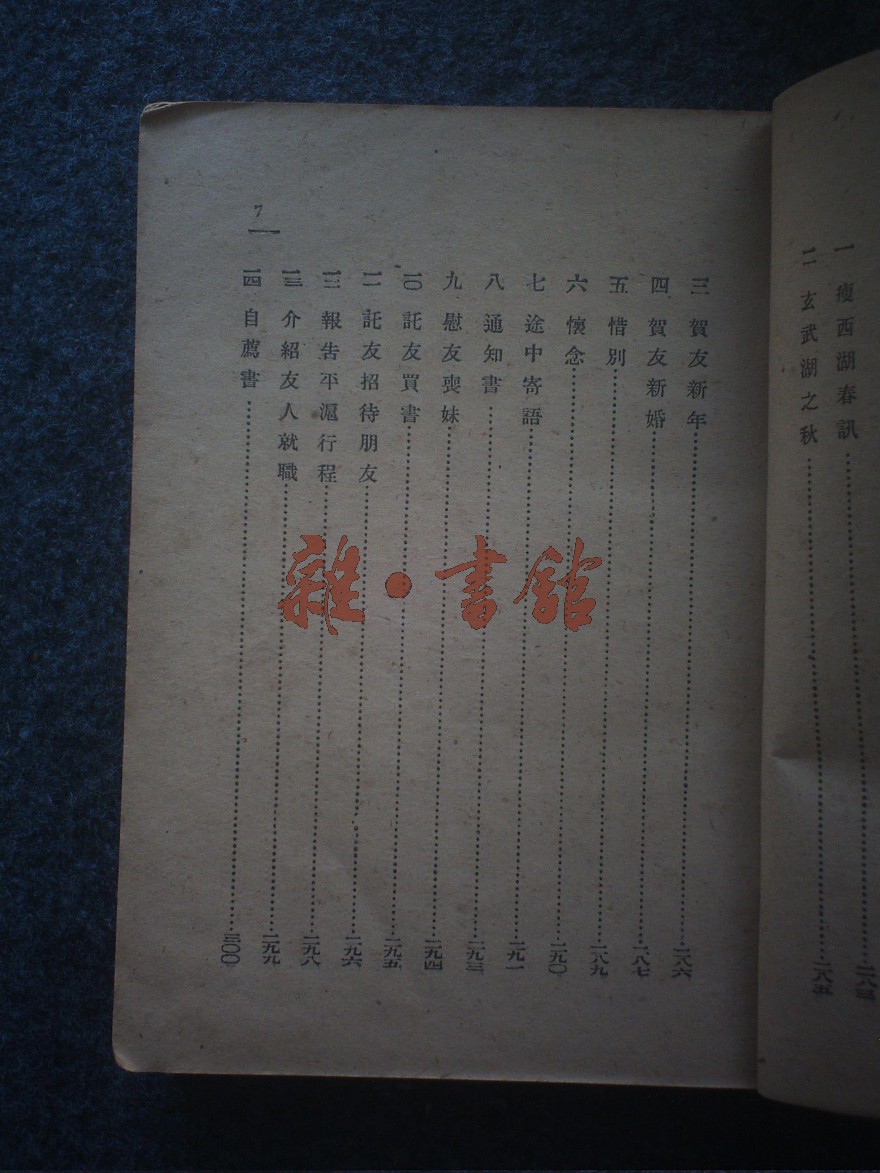 一 瘦西湖春訊
二 玄武湖之秋 二八五
三 賀友新年 二八六
四 賀友新婚 二八七
五 惜別 二八九
六 懷念 二九〇
七 途中寄語 二九一
八 通知書 二九三
九 慰友喪妹 二九四
一〇 託友買書 二九五
一一 託友招待朋友 二九六
一二 報告平滬行程 二九八
一三 介紹友人就職 二九九
一四 自薦書 三〇〇
7
雜·書館